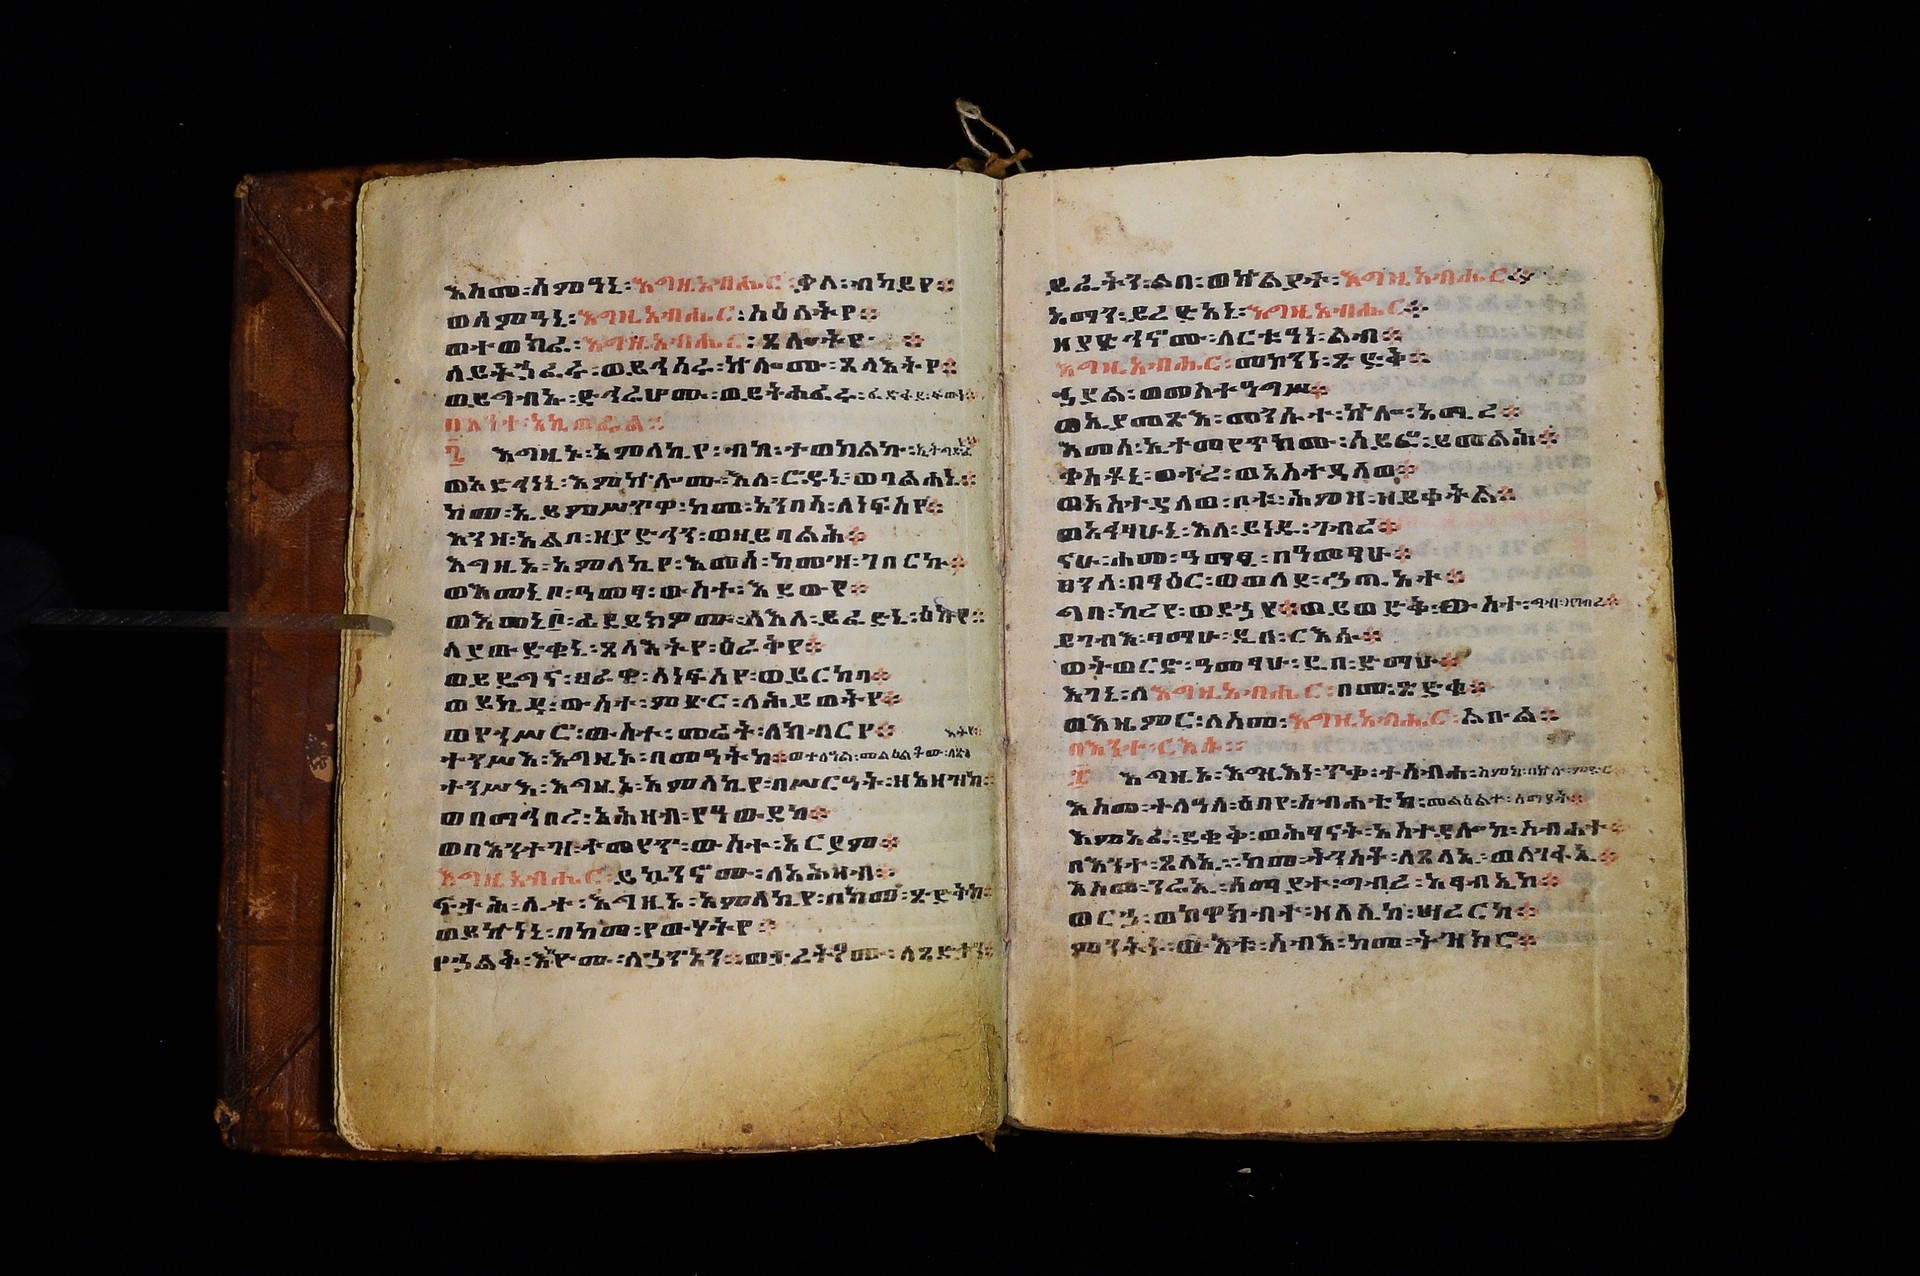 እስመ፡ሰምዓኒ፡እግዚአብሔር፡ቃለ፡ብካይየ።
ወሰምዓኒ፡እግዚአብሔር፡ስዕለትየ።
ወተወክፈ፡እግዚአብሔር፡ጸሎትየ።
ለይትኃፈሩ፡ወይኅሰሩ፡ኵሎሙ፡ጸላእትየ።
ወይግብኡ፡ድኅሬሆሙ፡ወይትሐፈሩ፡
በእንተ፡
፯ እግዚኦ፡አምላኪየ፡ብከ፡ተወከልኩ፡
ወአድኅነኒ፡እምኵሎሙ፡እለ፡ሮዱኒ፡ወባልሐኒ።
ከመ፡ኢይምሥጥዋ፡ከመ፡አንበሳ፡ለነፍስየ።
እንዘ፡አልቦ፡ዘያድኅን፡ወዘይባልሕ።
እግዚኦ፡አምላኪየ፡እመሰ፡ከመዝ፡ገበርኩ።
ወእመኒቦ፡ዓመፃ፡ውስተ፡እደውየ።
ወእመኒቦ፡ፈደይክዎሙ፡ለእለ፡ይፈድኒ፡ዕኩየ።
ለያውድቁኒ፡ጸላእትየ፡ዕራቅየ።
ወይዴግና፡ፀራዊ፡ለነፍስየ፡ወይርከባ።
ወይኪዳ፡ውስተ፡ምድር፡ለሕይወትየ።
ወያኅሥሮ፡ውስተ፡መሬት፡ለክብርየ።
ተንሥእ፡እግዚኦ፡በመዓትከ።ወተለዓል፡መልዕልቶሙ፡ለጸላ
ተንሥእ፡እግዚኦ፡አምላኪየ፡በሥርዓት፡ዘአዘዝከ።
ወበማኅበረ፡አሕዛብ፡የዓውደከ።
ወበእንተዝ፡ተመየጥ፡ውስተ፡አርያም።
እግዚአብሔር፡ይኴንኖሙ፡ለአሕዛብ።
ፍታሕ፡ሊተ፡እግዚኦ፡አምላኪየ፡በከመ፡ጽድቅከ።
ወይኩነኒ፡በከመ፡የውሃትየ።
የኃልቅ፡እከዮሙ፡ለኃጥአን።ወታረትዖሙ፡ለጻድቃን።
ይፈትን፡ልበ፡ወኵልያተ፡እግዚአብሔር።
አማን፡ይረድአኒ፡እግዚአብሔር።
ዘያድኅኖሙ፡ለርቱዓነ፡ልብ።
እግዚአብሔር፡መኰንነ፡ጽድቅ።
ኃያል፡ወመስተዓግሥ።
ወኢያመጽእ፡መንሱተ፡ኵሎ፡አሚረ።
እመሰ፡ኢተመየጥክሙ፡ሰይፎ፡ይመልሕ።
ቀስቶኒ፡ወተረ፡ወአስተዳለወ።
ወአስተዳለወ፡ቦቱ፡ሕምዘ፡ዘይቀትል።
ወአሕፃሁኒ፡እለ፡ይነዱ፡ገብረ።
ናሁ፡ሐመ፡ዓማፂ፡በዓመፃሁ።
ፀንሰ፡በፃዕር፡ወወለደ፡ኃጢአተ።
ግበ፡ከረየ፡ወደኃየ።ወይወድቅ፡ውስተ፡ግብ፡ዘገብረ።
ይገብእ፡ፃማሁ፡ዲበ፡ርእሱ።
ወትወርድ፡ዓመፃሁ፡ዲበ፡ድማሁ።
እገኒ፡ለእግዚአብሔር፡በከመ፡ጽድቁ።
ወእዜምር፡ለስመ፡እግዚአብሔር፡ልዑል።
በእንተ፡ርእሱ።
፰ እግዚኦ፡እግዚእነ፡ጥቀ፡ተሰብሐ፡ስምከ፡በኵሉ፡ምድር።
እስመ፡ተለዓለ፡ዕበየ፡ስብሐቲከ፡መልዕልተ፡ሰማያት።
እምአፈ፡ደቂቅ፡ወሕፃናት፡አስተዳሎከ፡ስብሐተ።
በእንተ፡ጸላኢ፡ከመ፡ትንስቶ፡ለጸላኢ፡ወለገፋኢ።
እስመ፡ንሬኢ፡ሰማያተ፡ግብረ፡አፃብኢከ።
ወርኃ፡ወከዋክብተ፡ዘለሊከ፡ሣረርከ።
ምንትኑ፡ውእቱ፡ሰብእ፡ከመ፡ትዝክሮ።